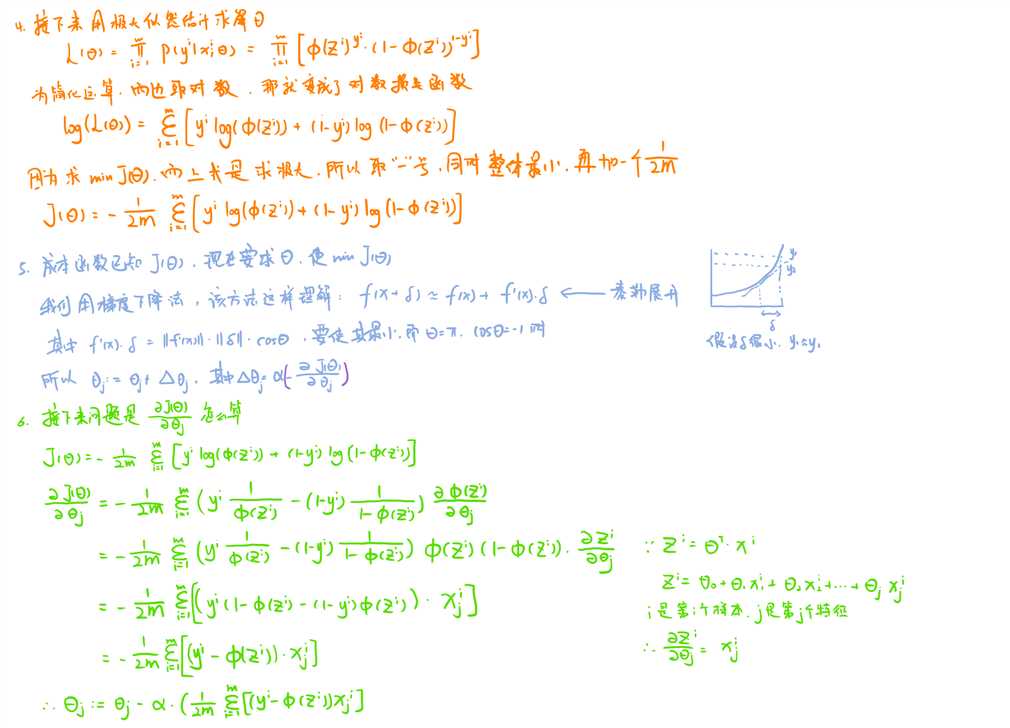 4. 接下来用极大似然估计求解θ
L(θ) = ∏_{i=1}^{m} P(y^i|x^i,θ) = ∏_{i=1}^{m} [ϕ(z^i)^{y^i}·(1-ϕ(z^i))^{1-y^i}]
为简化运算,两边取对数,那就变成了对数损失函数
log(L(θ)) = Σ_{i=1}^{m} [y^i log(ϕ(z^i)) + (1-y^i) log(1-ϕ(z^i))]
因为求 min J(θ),而上式是求极大,所以取"-"号,同时整体最小,再加一个 1/2m
J(θ) = - 1/2m Σ_{i=1}^{m} [y^i log(ϕ(z^i)) + (1-y^i) log(1-ϕ(z^i))]
5. 成本函数已知 J(θ),现在要求θ,使 min J(θ)
我们用梯度下降法,该方法这样理解: f(x+δ) ≈ f(x) + f'(x)·δ ← 泰勒展开
其中 f'(x)·δ = ||f'(x)||·||δ||·cosθ,要使其最小,即 θ=π, cosθ=-1 时
所以 θ_j := θ_j + Δθ_j,其中 Δθ_j = α(-∂J(θ)/∂θ_j)
y_1
y_2
δ
假设δ很小, y_1≈y_2
6. 接下来问题是 ∂J(θ)/∂θ_j 怎么算
J(θ) = - 1/2m Σ_{i=1}^{m} [y^i log(ϕ(z^i)) + (1-y^i) log(1-ϕ(z^i))]
∂J(θ)/∂θ_j = - 1/2m Σ_{i=1}^{m} (y^i 1/ϕ(z^i) - (1-y^i) 1/(1-ϕ(z^i))) ∂ϕ(z^i)/∂θ_j
= - 1/2m Σ_{i=1}^{m} (y^i 1/ϕ(z^i) - (1-y^i) 1/(1-ϕ(z^i))) ϕ(z^i)(1-ϕ(z^i))·∂z^i/∂θ_j
= - 1/2m Σ_{i=1}^{m} [(y^i(1-ϕ(z^i) - (1-y^i)ϕ(z^i))·x_j^i]
= - 1/2m Σ_{i=1}^{m} [(y^i - ϕ(z^i))·x_j^i]
∴ θ_j := θ_j - α·(1/2m Σ_{i=1}^{m} [(y^i-ϕ(z^i))x_j^i]
∵ z^i = θ^T·x^i
z^i = θ_0 + θ_1 x_1^i + θ_2 x_2^i + ... + θ_j x_j^i
i是第i个样本,j是第j个特征
∴ ∂z^i/∂θ_j = x_j^i